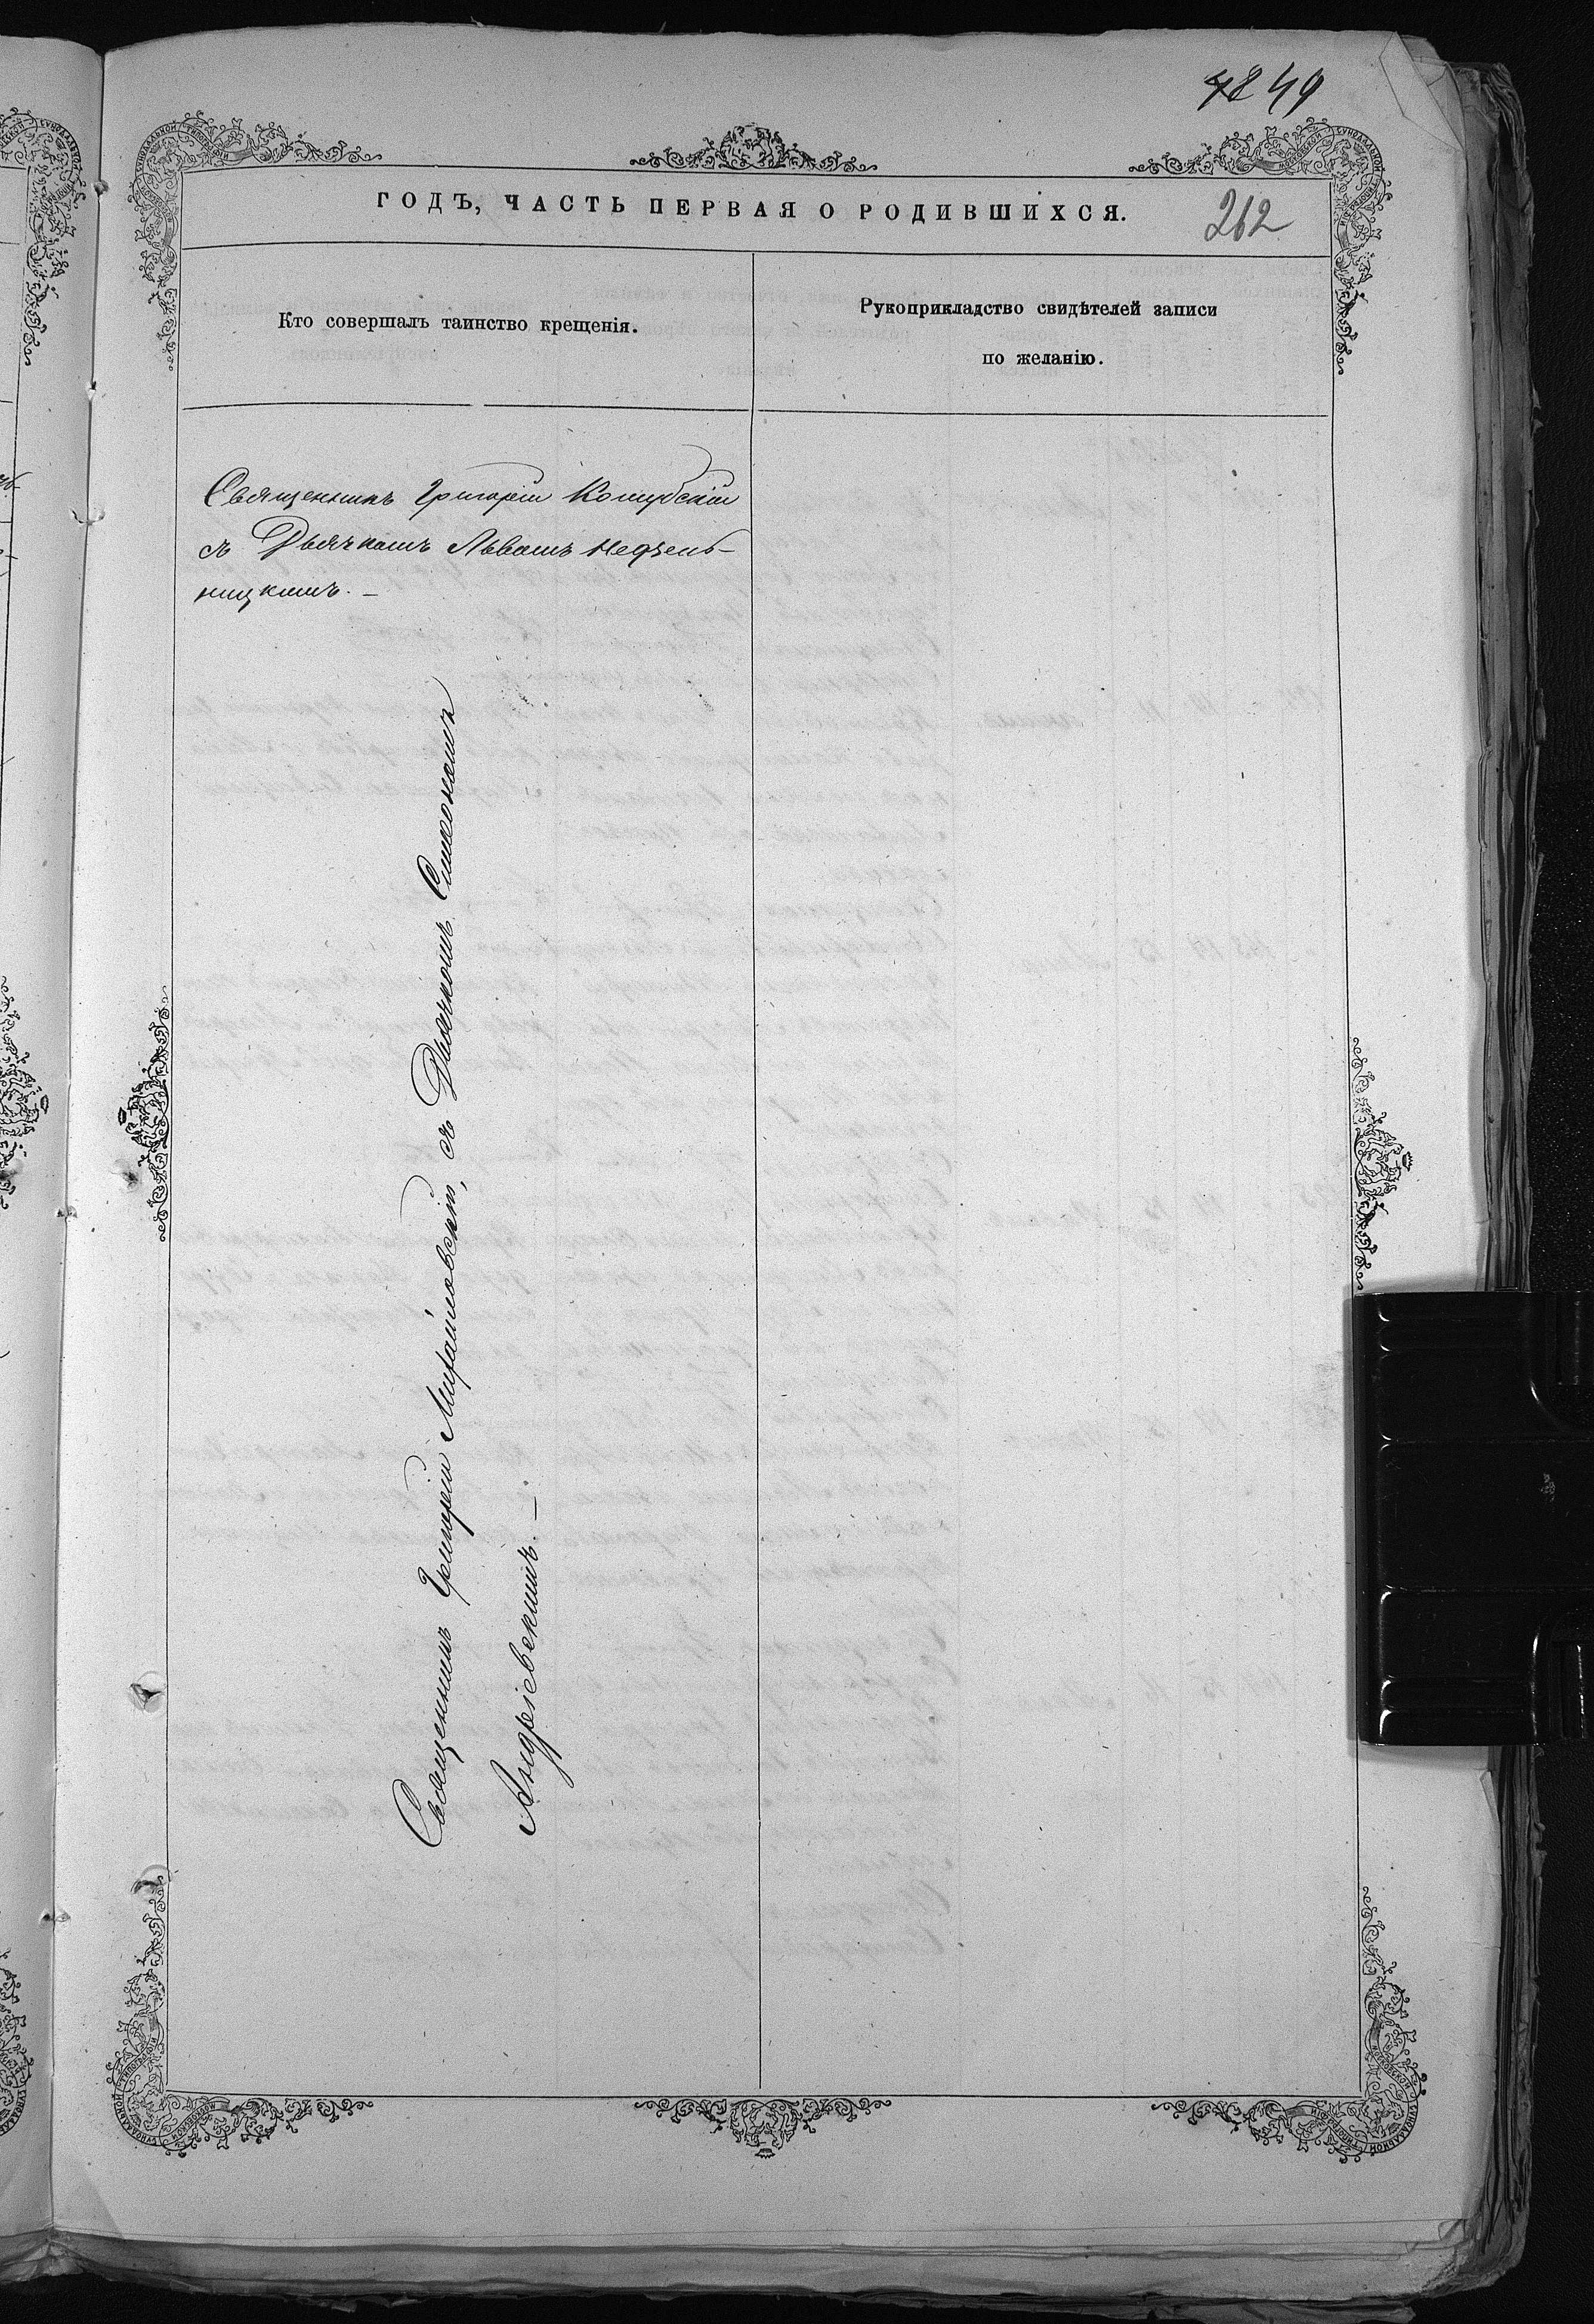 4849
ГОДЪ, ЧАСТЬ ПЕРВАЯ О РОДИВШИХСЯ.
262
Кто совершалъ таинство крещенія.
Рукоприкладство свидѣтелей записи
по желанію.
Священникъ Григорій
съ Дьячкомъ Львомъ Недѣль-
ницкимъ. –
Священникъ Григорій Михайловскій, съ Дьячкомъ Симеономъ
Андріевскимъ. –